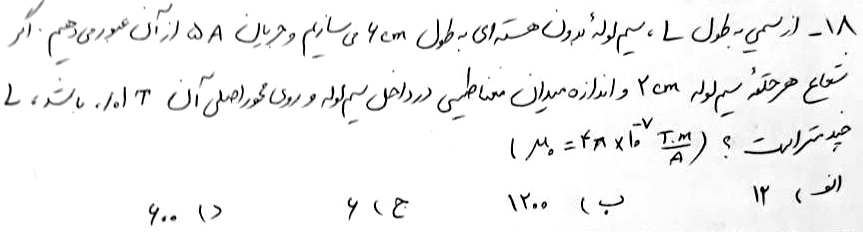 ۱۸- از سیمی به طول L، سیم‌لولهٔ بدون هسته‌ای به طول ۶cm می‌سازیم و جریان ۵A از آن عبور می‌دهیم. اگر
شعاع هر حلقهٔ سیم‌لوله ۲cm و اندازه میدان مغناطیسی در داخل سیم‌لوله و روی محور اصلی آن ۰/۰۱T باشد، L
چند متر است؟ (μ₀ = ۴π×۱۰⁻⁷ T.m/A)
الف) ۱۲ ب) ۱۲۰۰ ج) ۶ د) ۶۰۰